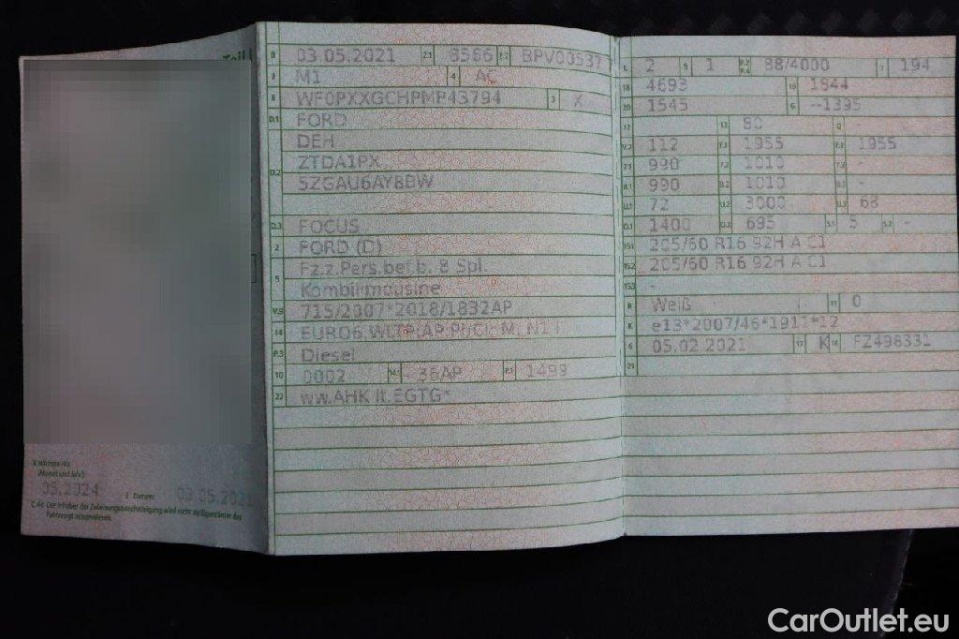 Teil I
B 03.05.2021 2.1 8566 2.2 BPV00537
J M1 4 AC
E WF0PXXGCHPMP43794 3 X
D.1 FORD
DEH
D.2 ZTDA1PX
5ZGAU6AYBBW
D.3 FOCUS
2 FORD (D)
5 Fz.z.Pers.bef.b. 8 Spl.
Kombilimousine
V.9 715/2007*2018/1832AP
14 EURO6
P.3 Diesel
10 0002 14.1 36AP P.1 1499
22 ww.AHK lt.EGTG*
L 2 9 1 P.2 P.4 88/4000 T 194
18 4693 19 1844
20 1545 G --1395
12 - 13 80 Q -
V.7 112 F.1 1955 F.2 1955
7.1 990 7.2 1010 7.3 -
8.1 990 8.2 1010 8.3 -
U.1 72 U.2 3000 U.3 68
O.1 1400 O.2 695 S.1 5 S.2 -
15.1 205/60 R16 92H A C1
15.2 205/60 R16 92H A C1
15.3 -
R Weiß 11 0
K e13*2007/46*1911*12
6 05.02.2021 17 K 16 FZ498331
21
(Monat und Jahr)
05.2024 I Datum: 03.05.2021
C.4c Der Inhaber der Zulassungsbescheinigung wird nicht als Eigentümer des
Fahrzeugs ausgewiesen.
CarOutlet.eu